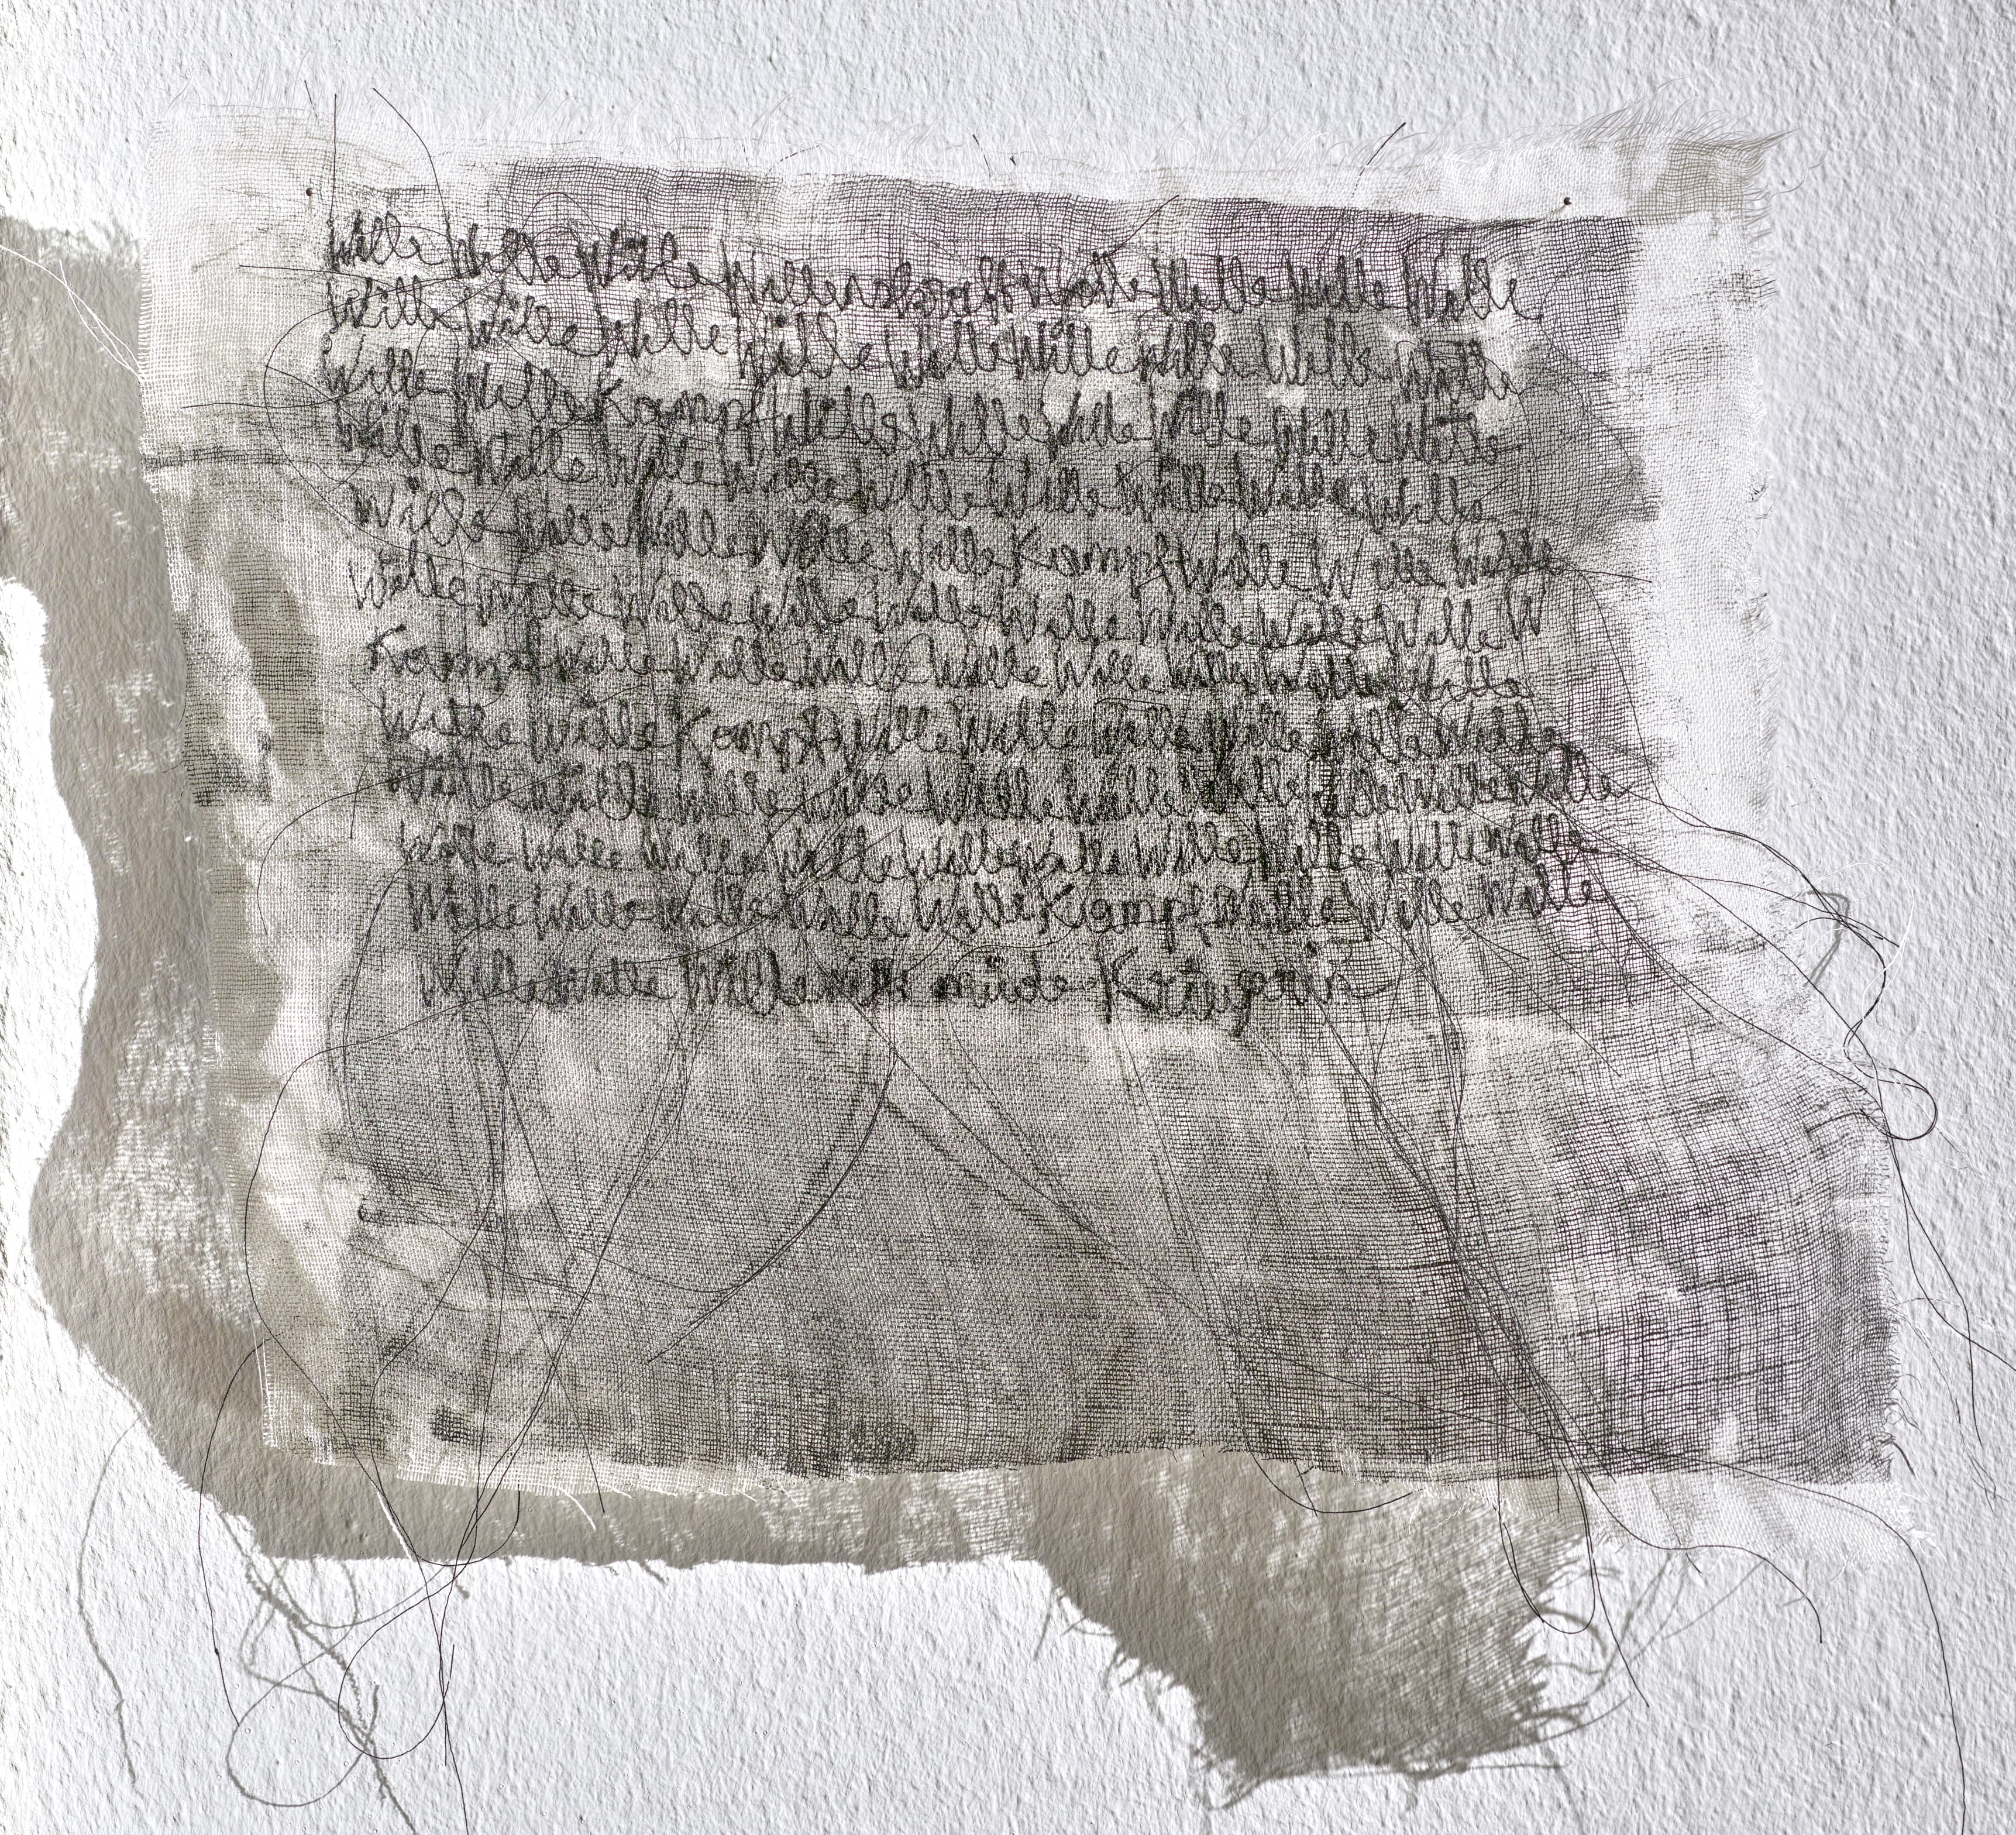 Wille Wille Wille Willenskraft Wille Wille Wille Wille
Wille Wille Wille Wille Wille Wille Wille Wille Wille
Wille Wille Kampf Wille Wille Wille Wille Wille Wille
Wille Wille Wille Wille Wille Wille Wille Wille Wille
Wille Wille Wille Wille Wille Kampf Wille Wille Wille
Wille Wille Wille Wille Wille Wille Wille Wille Wille W
Kampf Wille Wille Wille Wille Wille Wille Wille Wille
Wille Wille Kampf Wille Wille Wille Wille Wille Wille
Wille Wille Wille Wille Wille Wille Wille Wille Wille Wille
Wille Wille Wille Wille Wille Wille Wille Wille Wille Wille
Wille Wille Wille Wille Wille Kampf Wille Wille Wille
Wille Wille Wille müde Kriegerin